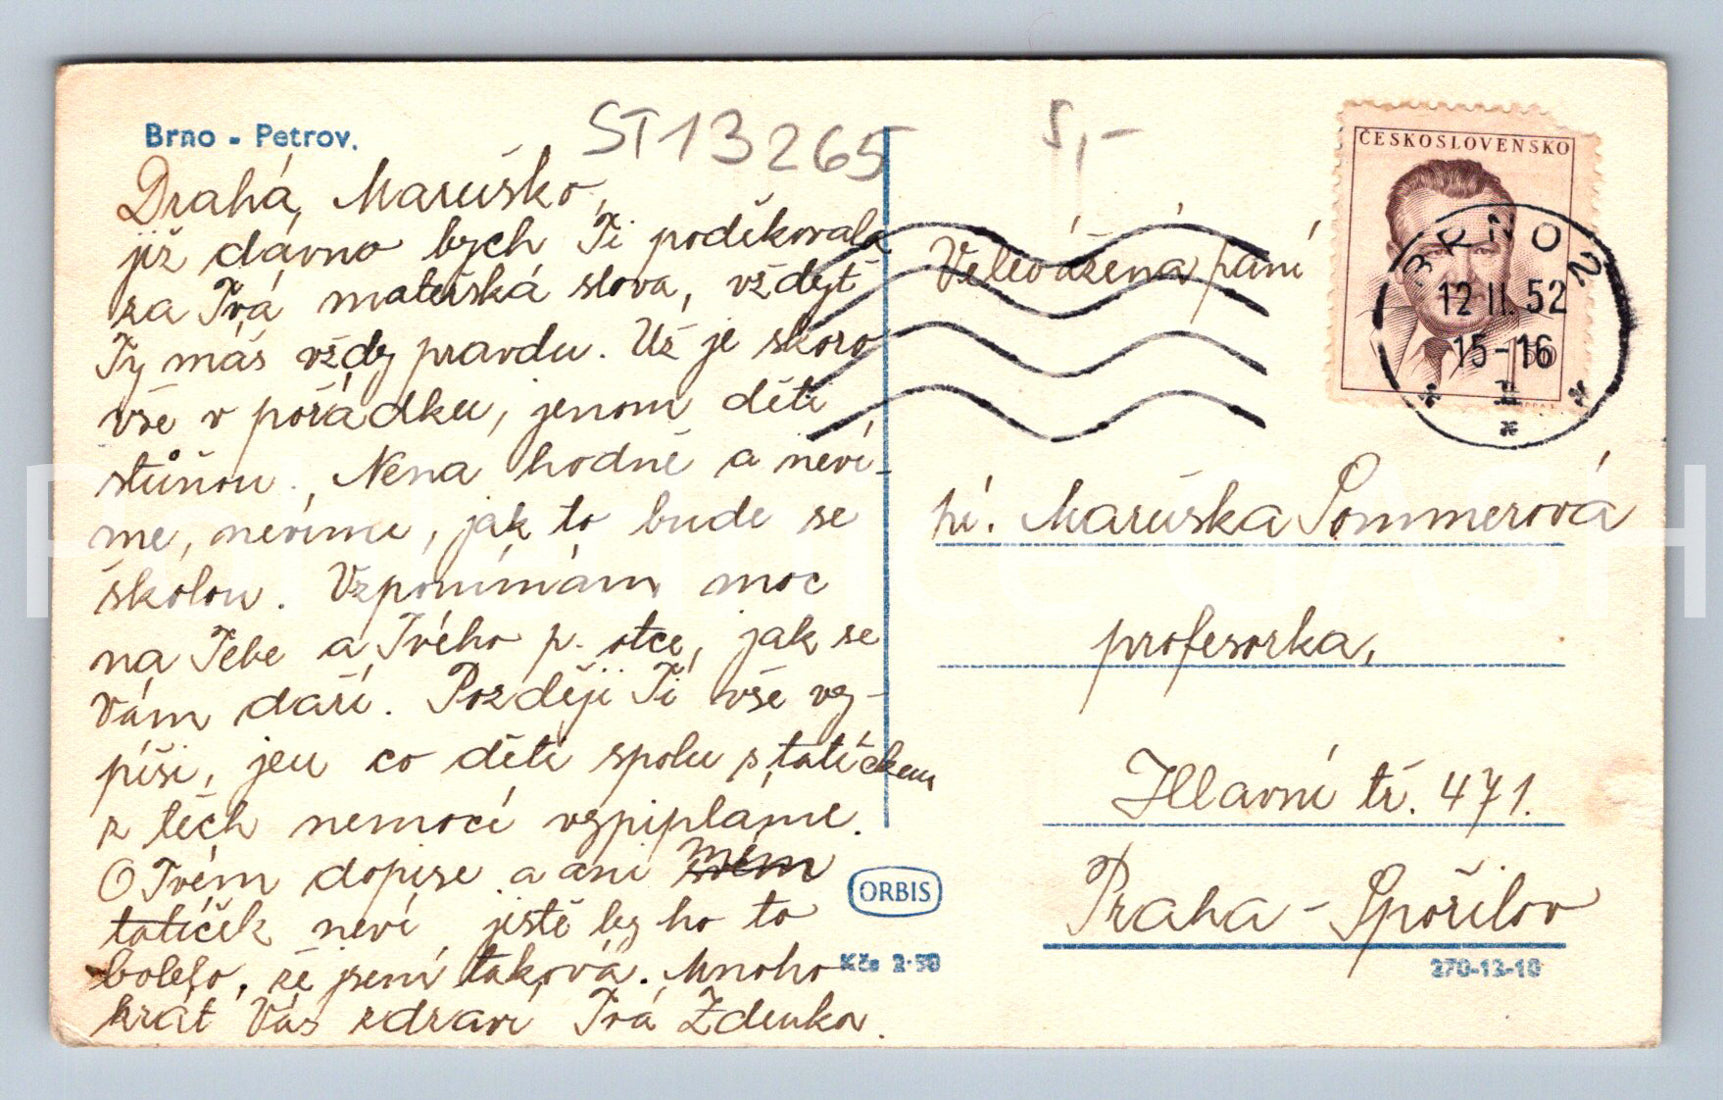 Brno - Petrov.
ST13265
5,-
ČESKOSLOVENSKO
BRNO 2
12 II. 52
15-16
Drahá Maruško,
již dávno bych Ti poděkovala
za Tvá mateřská slova, vždyť
Ty máš vždy pravdu. Už je skoro
vše v pořádku, jenom děti
stůňou. Nena hodně a neví-
me, nevíme, jak to bude se
školou. Vzpomínám moc
na Tebe a Tvého p. otce, jak se
Vám daří. Později Ti vše vy-
píši, jen co děti spolu s tatíčkem
z těch nemocí vypipláme.
O Tvém dopise a ani mém
tatíček neví, jistě by ho to
bolelo, že jsem taková. Mnoho
krát Vás zdraví Tvá Zdenka.
Velevážená paní
Maruška Pommerová
profesorka,
Hlavní tř. 471.
Praha - Spořilov
ORBIS
Kčs 2·50
270-12-10